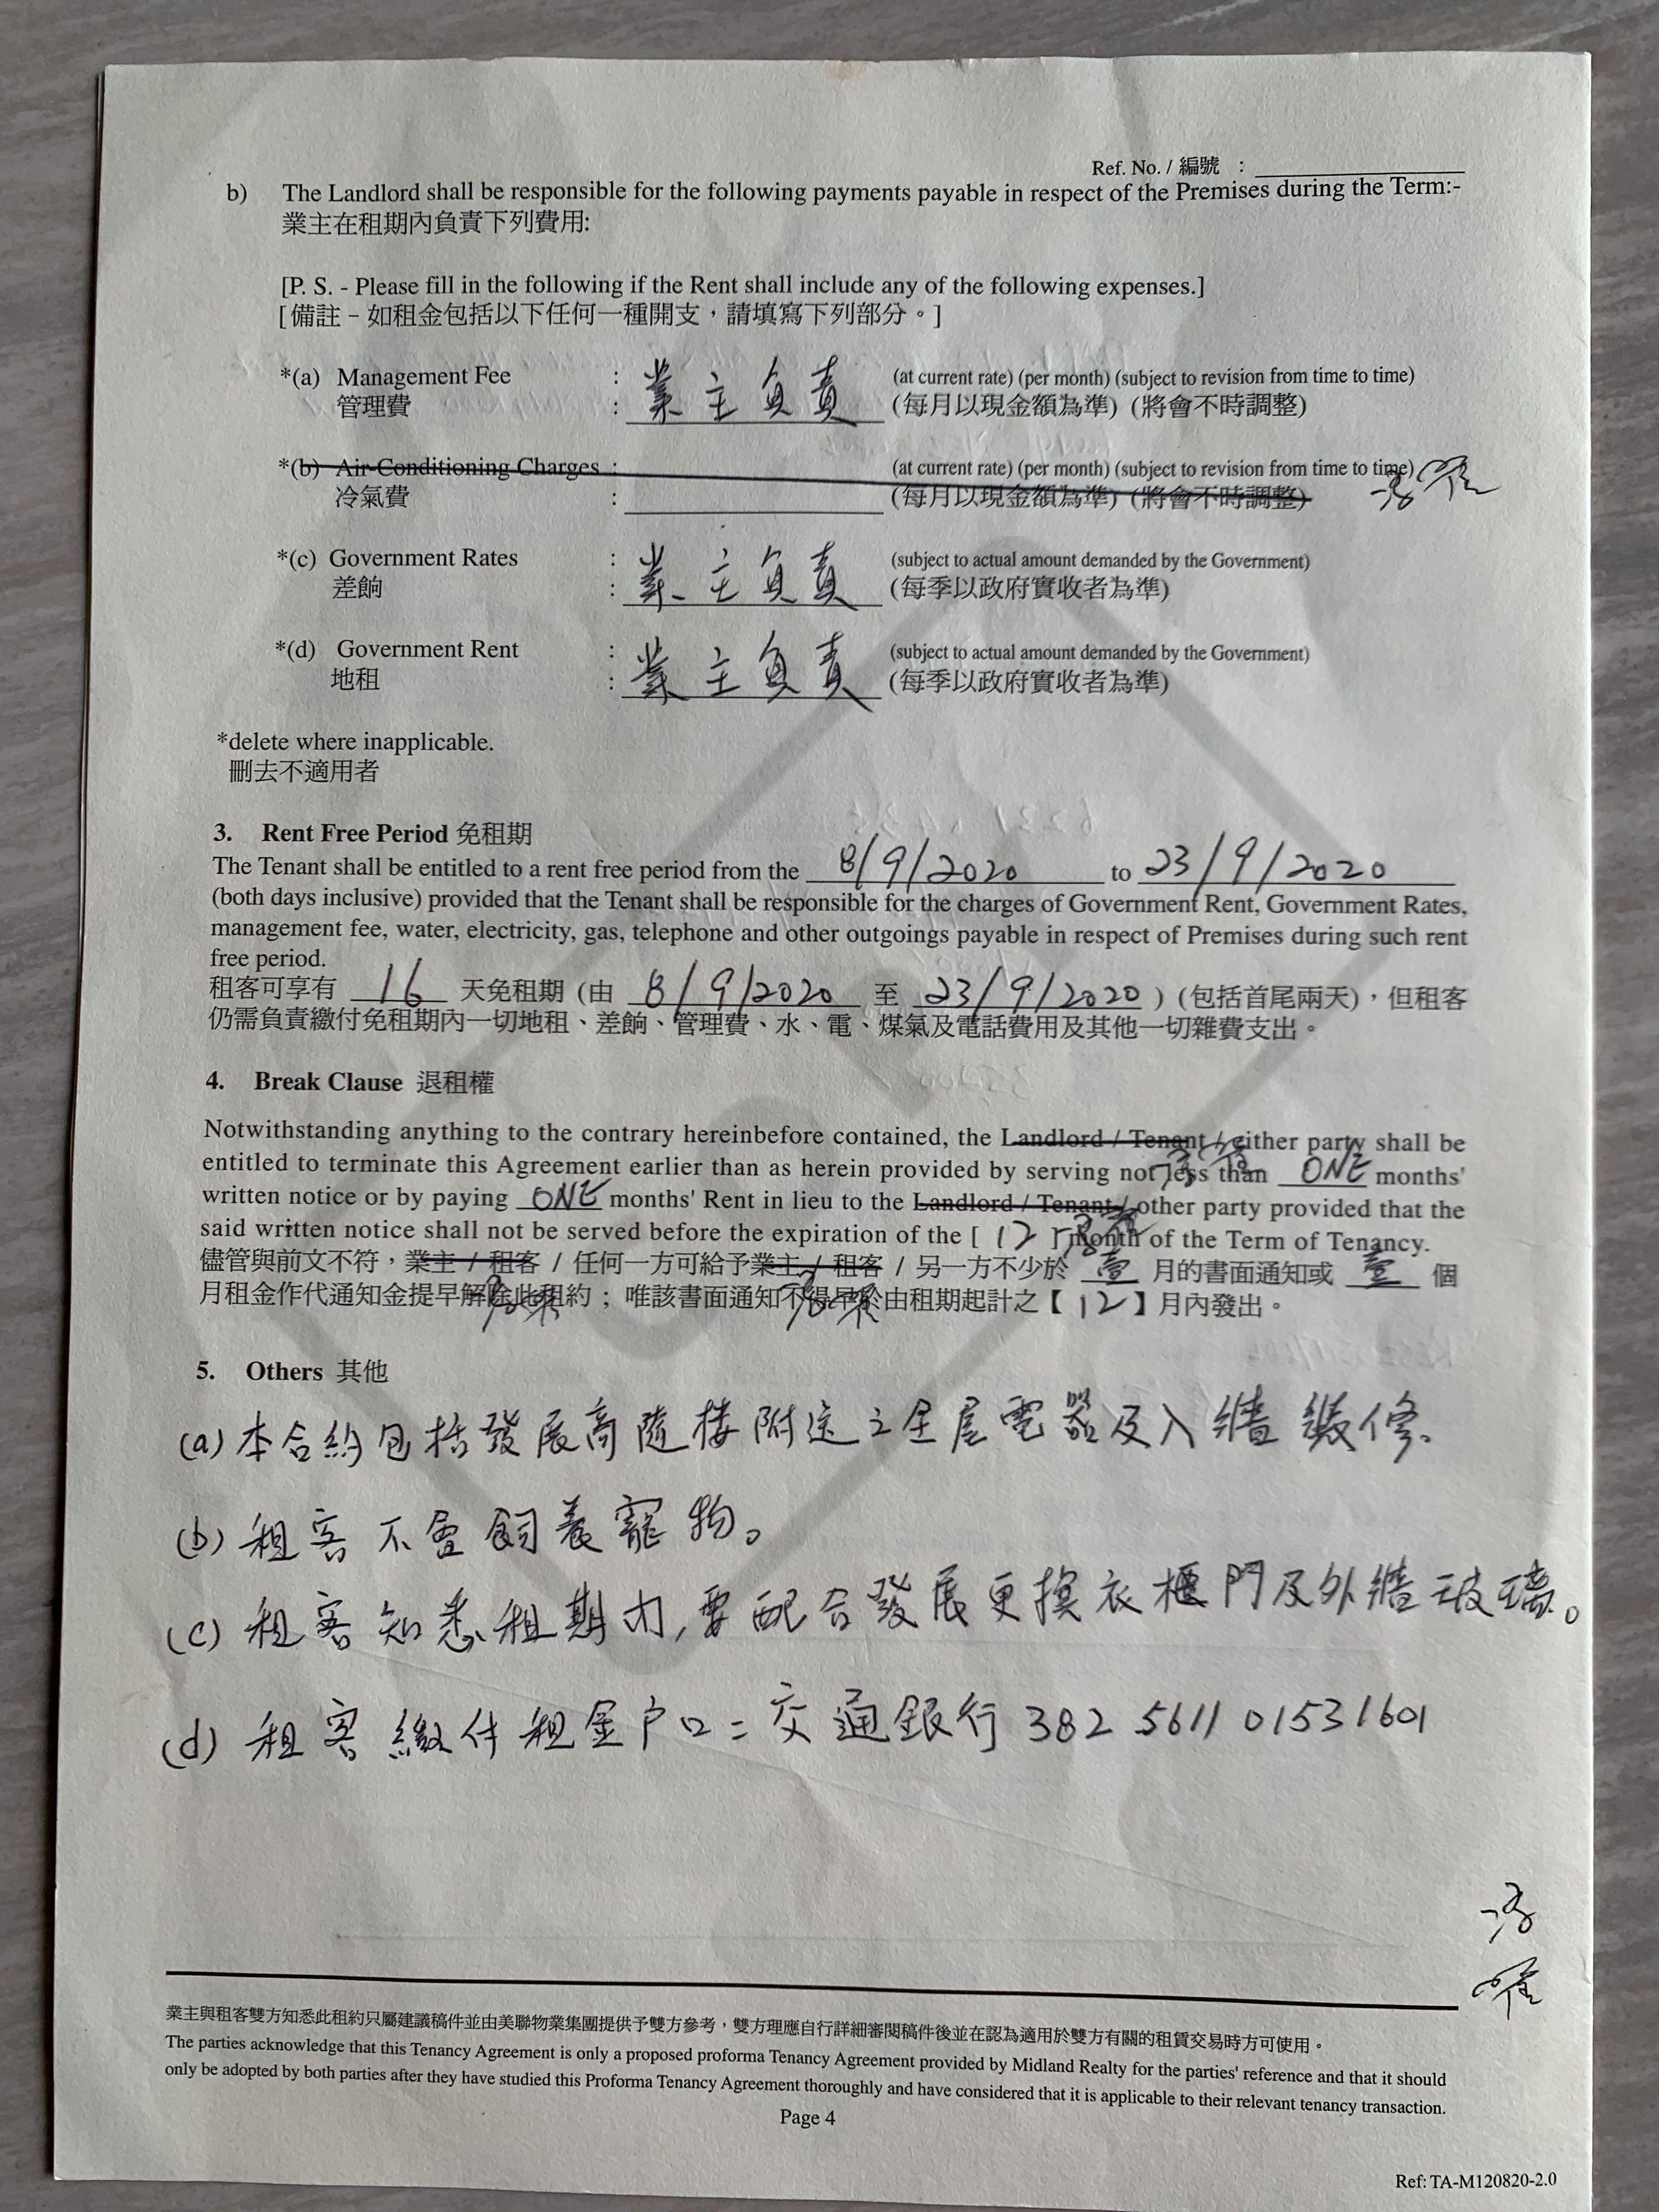 Ref. No. / 編號 :
b) The Landlord shall be responsible for the following payments payable in respect of the Premises during the Term:-
業主在租期內負責下列費用:
[P. S. - Please fill in the following if the Rent shall include any of the following expenses.]
[ 備註 – 如租金包括以下任何一種開支，請填寫下列部分。]
*(a) Management Fee : 業主負責 (at current rate) (per month) (subject to revision from time to time)
管理費 : (每月以現金額為準) (將會不時調整)
*(b) Air-Conditioning Charges : (at current rate) (per month) (subject to revision from time to time)
冷氣費 : (每月以現金額為準) (將會不時調整)
*(c) Government Rates : 業主負責 (subject to actual amount demanded by the Government)
差餉 : (每季以政府實收者為準)
*(d) Government Rent : 業主負責 (subject to actual amount demanded by the Government)
地租 : (每季以政府實收者為準)
*delete where inapplicable.
刪去不適用者
3. Rent Free Period 免租期
The Tenant shall be entitled to a rent free period from the 8/9/2020 to 23/9/2020
(both days inclusive) provided that the Tenant shall be responsible for the charges of Government Rent, Government Rates,
management fee, water, electricity, gas, telephone and other outgoings payable in respect of Premises during such rent
free period.
租客可享有 16 天免租期 (由 8/9/2020 至 23/9/2020 ) (包括首尾兩天)，但租客
仍需負責繳付免租期內一切地租、差餉、管理費、水、電、煤氣及電話費用及其他一切雜費支出。
4. Break Clause 退租權
Notwithstanding anything to the contrary hereinbefore contained, the Landlord / Tenant / either party shall be
entitled to terminate this Agreement earlier than as herein provided by serving not less than ONE months'
written notice or by paying ONE months' Rent in lieu to the Landlord / Tenant / other party provided that the
said written notice shall not be served before the expiration of the [ 12 ] month of the Term of Tenancy.
儘管與前文不符，業主 / 租客 / 任何一方可給予業主 / 租客 / 另一方不少於 壹 月的書面通知或 壹 個
月租金作代通知金提早解除此租約；唯該書面通知不得早於由租期起計之【 12 】月內發出。
5. Others 其他
(a) 本合約包括發展商隨樓附送之全屋電器及入牆裝修.
(b) 租客不會飼養寵物。
(c) 租客知悉租期內, 要配合發展更換衣櫃門及外牆玻璃。
(d) 租客繳付租金戶口 = 交通銀行 382 5611 01531601
業主與租客雙方知悉此租約只屬建議稿件並由美聯物業集團提供予雙方參考，雙方理應自行詳細審閱稿件後並在認為適用於雙方有關的租賃交易時方可使用。
The parties acknowledge that this Tenancy Agreement is only a proposed proforma Tenancy Agreement provided by Midland Realty for the parties' reference and that it should
only be adopted by both parties after they have studied this Proforma Tenancy Agreement thoroughly and have considered that it is applicable to their relevant tenancy transaction.
Page 4
Ref: TA-M120820-2.0